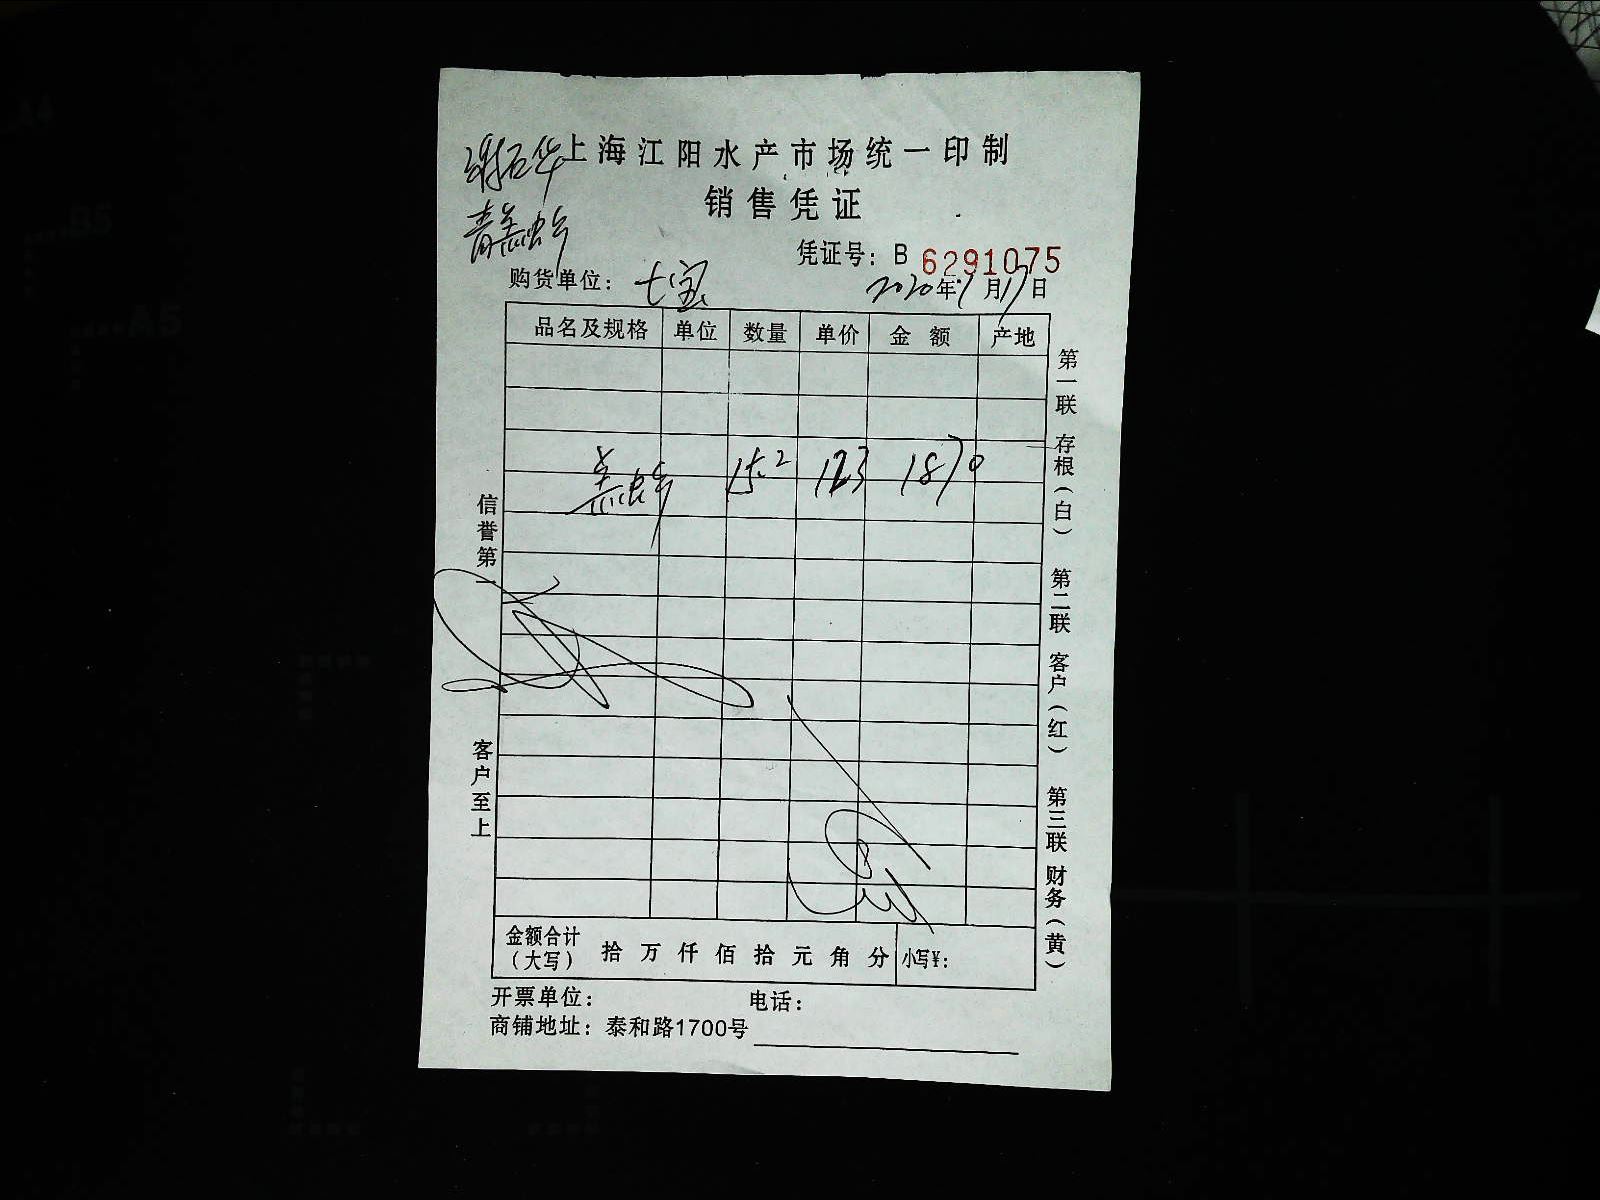 上海江阳水产市场统一印制
销售凭证
凭证号：B 6291075
购货单位：七宝
2020年7月17日
品名及规格 单位 数量 单价 金额 产地
15.2 123 1870
信誉第一
客户至上
第一联 存根（白） 第二联 客户（红） 第三联 财务（黄）
金额合计（大写） 拾 万 仟 佰 拾 元 角 分 小写¥：
开票单位： 电话：
商铺地址：泰和路1700号